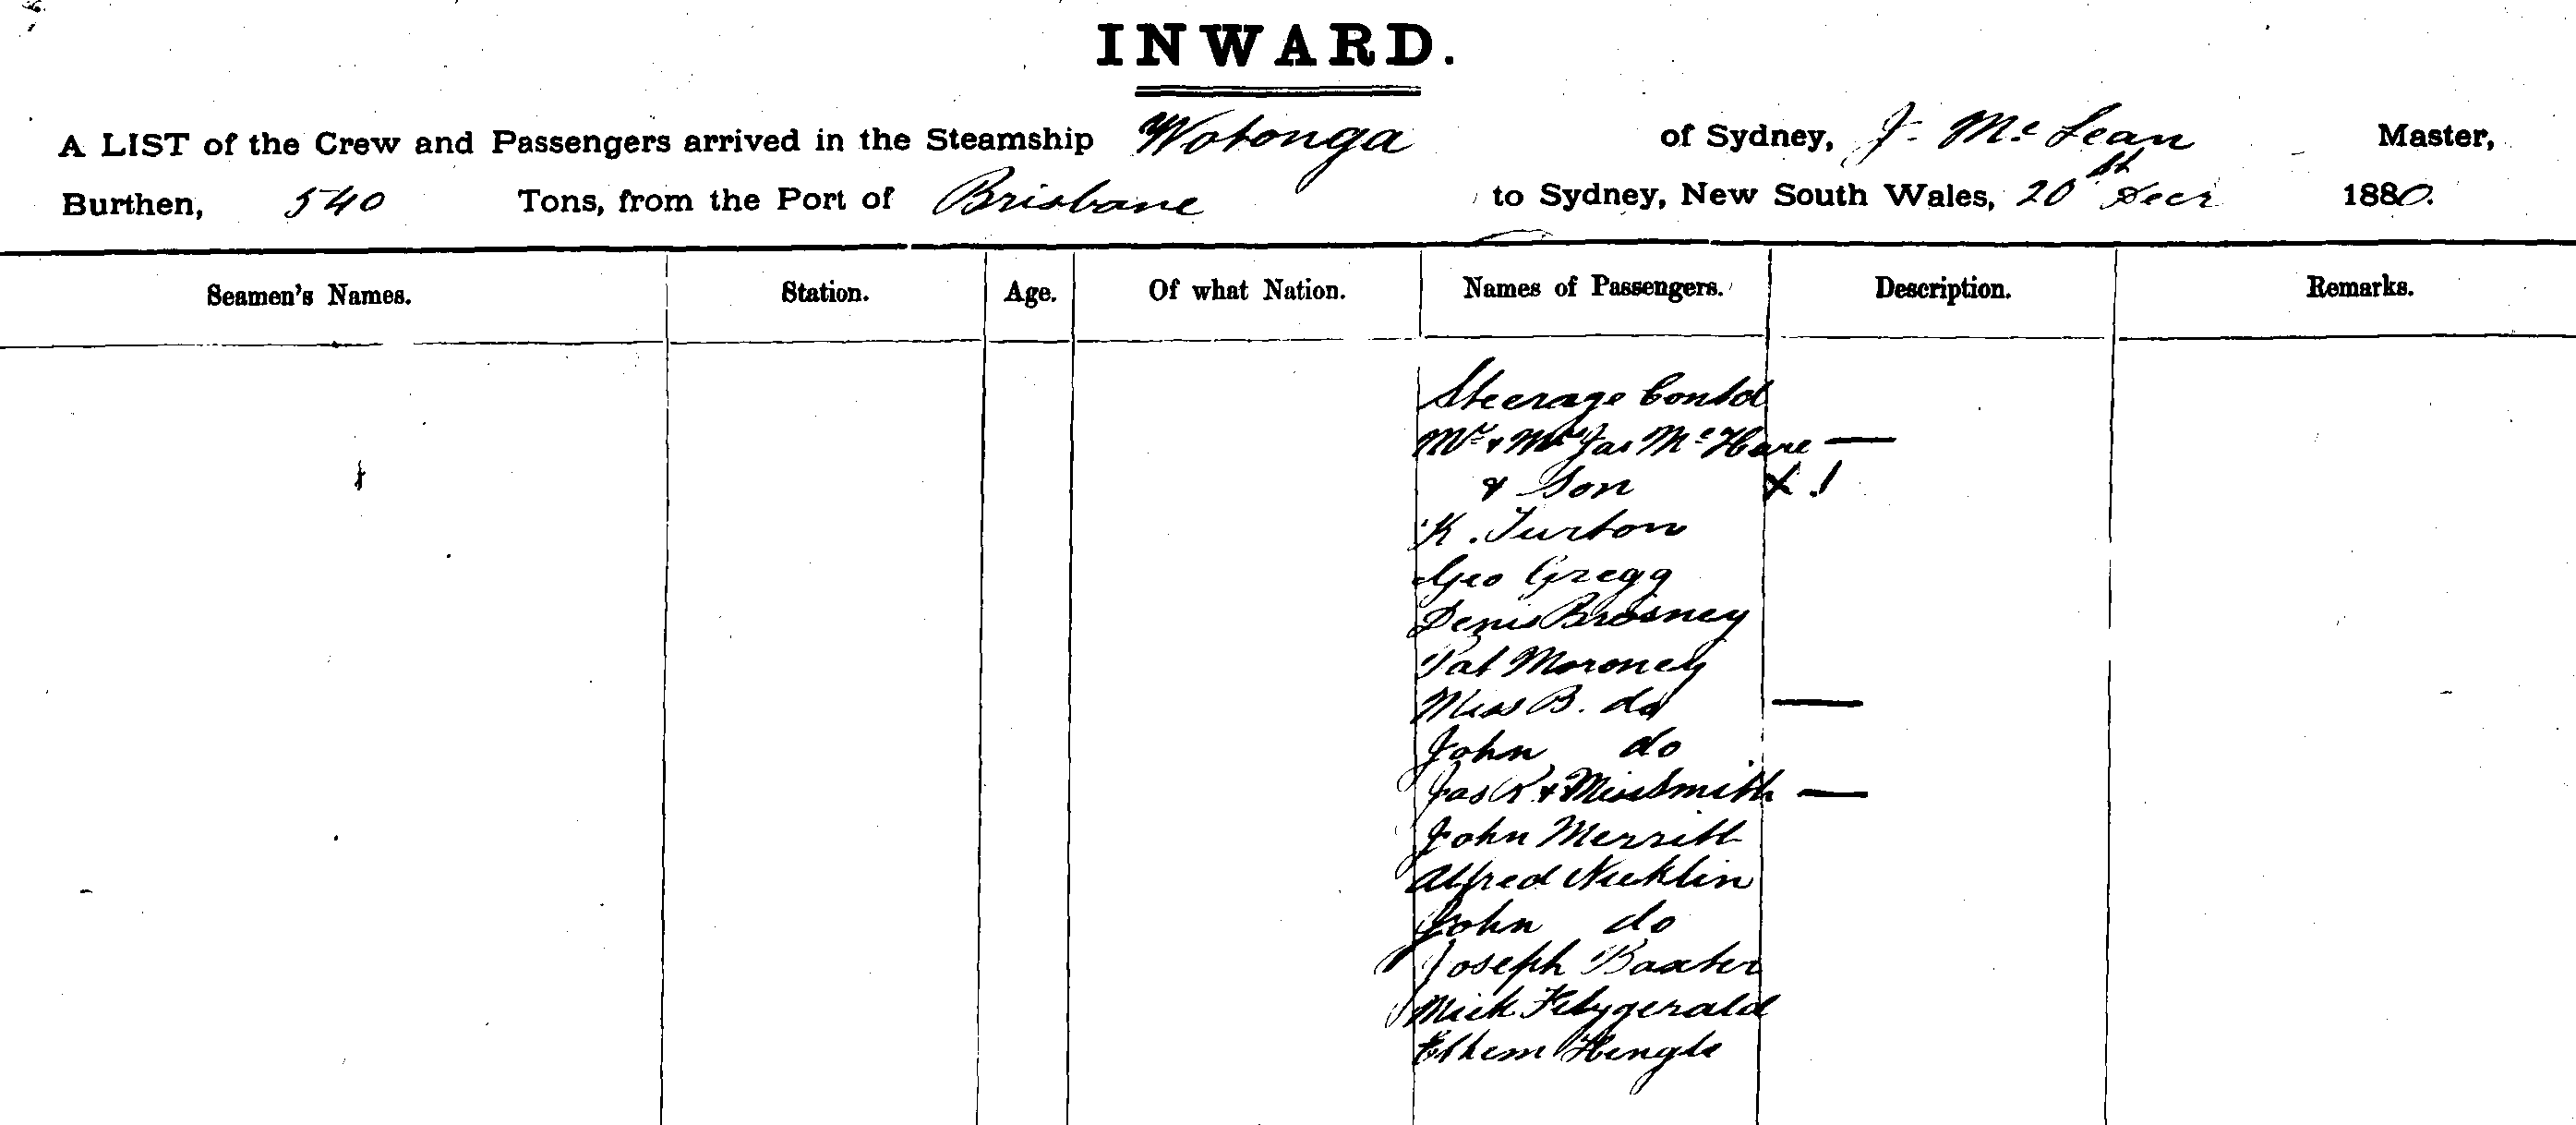 INWARD.
A LIST of the Crew and Passengers arrived in the Steamship Wotonga of Sydney, J. Mc Lean Master,
Burthen, 540 Tons, from the Port of Brisbane to Sydney, New South Wales, 20th Decr 1880.
Seamen's Names. Station. Age. Of what Nation. Names of Passengers. Description. Remarks.
Steerage Contd
Mr & Mrs Jas Mc Hare —
& Son x 1
K. Turton
Geo Gregg
Denis Brosney
Pat Moroney
Miss B. do —
John do
Jas K & Miss Smith —
John Merritt
Alfred Nicklin
John do
Joseph Baxter
Mick Fitzgerald